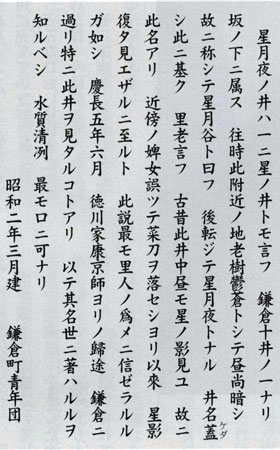 星月夜ノ井ハ一ニ星ノ井トモ言フ　鎌倉十井ノ一ナリ
坂ノ下ニ属ス　往時此附近ノ地老樹鬱蒼トシテ昼尚暗シ
故ニ称シテ星月谷ト曰フ　後転ジテ星月夜トナル　井名蓋ケダ
シ此ニ基ク　里老言フ　古昔此井中昼モ星ノ影見ユ　故ニ
此名アリ　近傍ノ婢女誤ツテ菜刀ヲ落セシヨリ以来　星影
復タ見エザルニ至ルト　此説最モ里人ノ為メニ信ゼラルル
ガ如シ　慶長五年六月　徳川家康京師ヨリノ帰途　鎌倉ニ
過リ特ニ此井ヲ見タルコトアリ　以テ其名世ニ著ハルルヲ
知ルベシ　水質清冽　最モロニ可ナリ
昭和二年三月建　鎌倉町青年団